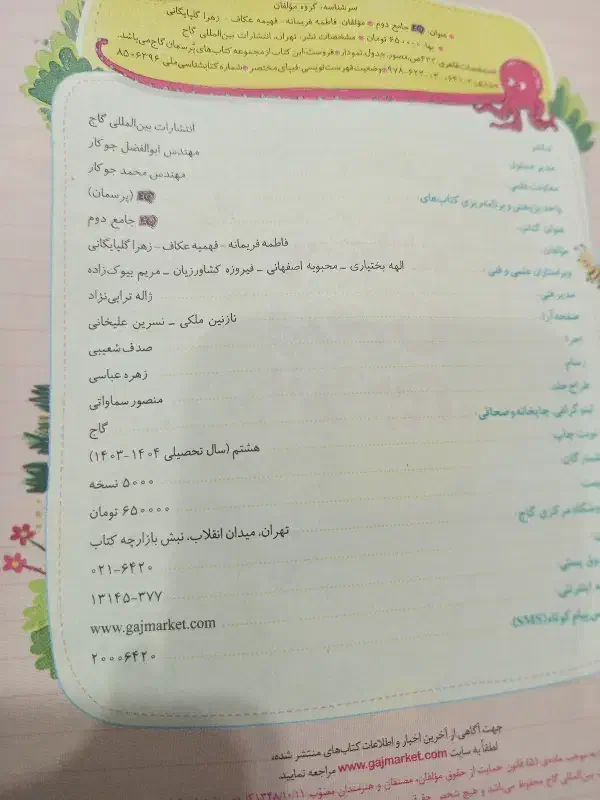 سرشناسه: گروه مؤلفان
عنوان: EQ جامع دوم • مؤلفان: فاطمه فریمانه - فهیمه عکاف - زهرا گلپایگانی
بها: ۶۵۰۰۰۰ تومان • مشخصات نشر: تهران، انتشارات بین‌المللی گاج
مشخصات ظاهری: ۴۳۲ص، مصور، جدول، نمودار • فروست: این کتاب از مجموعه کتاب‌های پرسمان گاج می‌باشد.
وضعیت فهرست‌نویسی: فیپای مختصر • شماره کتابشناسی ملی: ۸۵۰۶۳۹۶
ناشر انتشارات بین‌المللی گاج
مدیر مسئول مهندس ابوالفضل جوکار
معاونت علمی مهندس محمد جوکار
واحد پژوهش و برنامه‌ریزی کتاب‌های EQ (پرسمان)
عنوان کتاب EQ جامع دوم
مؤلفان فاطمه فریمانه - فهمیه عکاف - زهرا گلپایگانی
ویراستاران علمی و فنی الهه بختیاری - محبوبه اصفهانی - فیروزه کشاورزیان - مریم بیوک‌زاده
مدیر فنی ژاله ترابی‌نژاد
صفحه‌آرا نازنین ملکی - نسرین علیخانی
اجرا صدف شعیبی
رسام زهره عباسی
طراح جلد منصور سماواتی
لیتوگرافی، چاپخانه و صحافی گاج
نوبت چاپ هشتم (سال تحصیلی ۱۴۰۴-۱۴۰۳)
شمارگان ۵۰۰۰ نسخه
۶۵۰۰۰۰ تومان
مرکزی گاج تهران، میدان انقلاب، نبش بازارچه کتاب
۰۲۱-۶۴۲۰
پستی ۱۳۱۴۵-۳۷۷
اینترنتی www.gajmarket.com
پیام کوتاه (SMS) ۲۰۰۰۶۴۲۰
جهت آگاهی از آخرین اخبار و اطلاعات کتاب‌های منتشر شده،
لطفاً به سایت www.gajmarket.com مراجعه نمایید.
به موجب ماده‌ی (۵) قانون حمایت از حقوق مؤلفان، مصنفان و هنرمندان مصوب ۱۳۴۸/۱۰/۱۱
گاج محفوظ می‌باشد و هیچ شخص